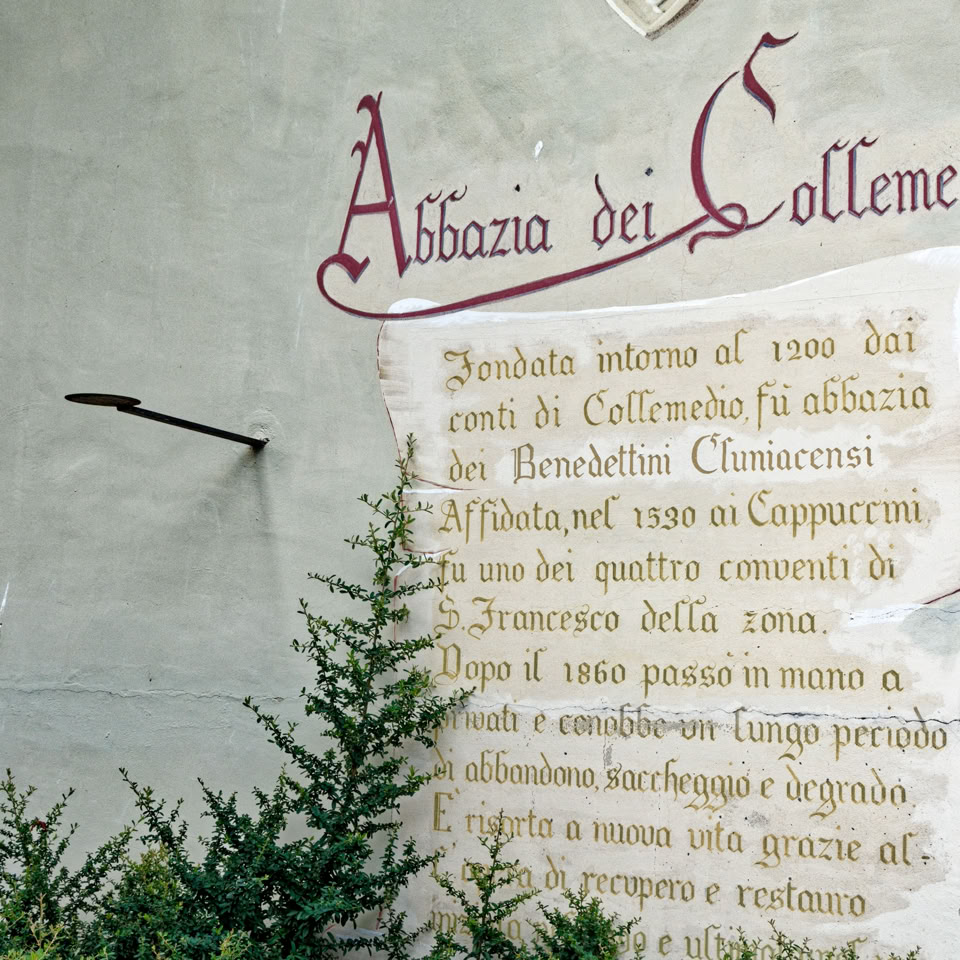 Abbazia dei Colleme
Fondata intorno al 1200 dai
conti di Collemedio, fù abbazia
dei Benedettini Cluniacensi
Affidata, nel 1530 ai Cappuccini
fu uno dei quattro conventi di
S. Francesco della zona.
Dopo il 1860 passò in mano a
privati e conobbe un lungo periodo
di abbandono, saccheggio e degrado.
E' risorta a nuova vita grazie al-
di recupero e restauro
e